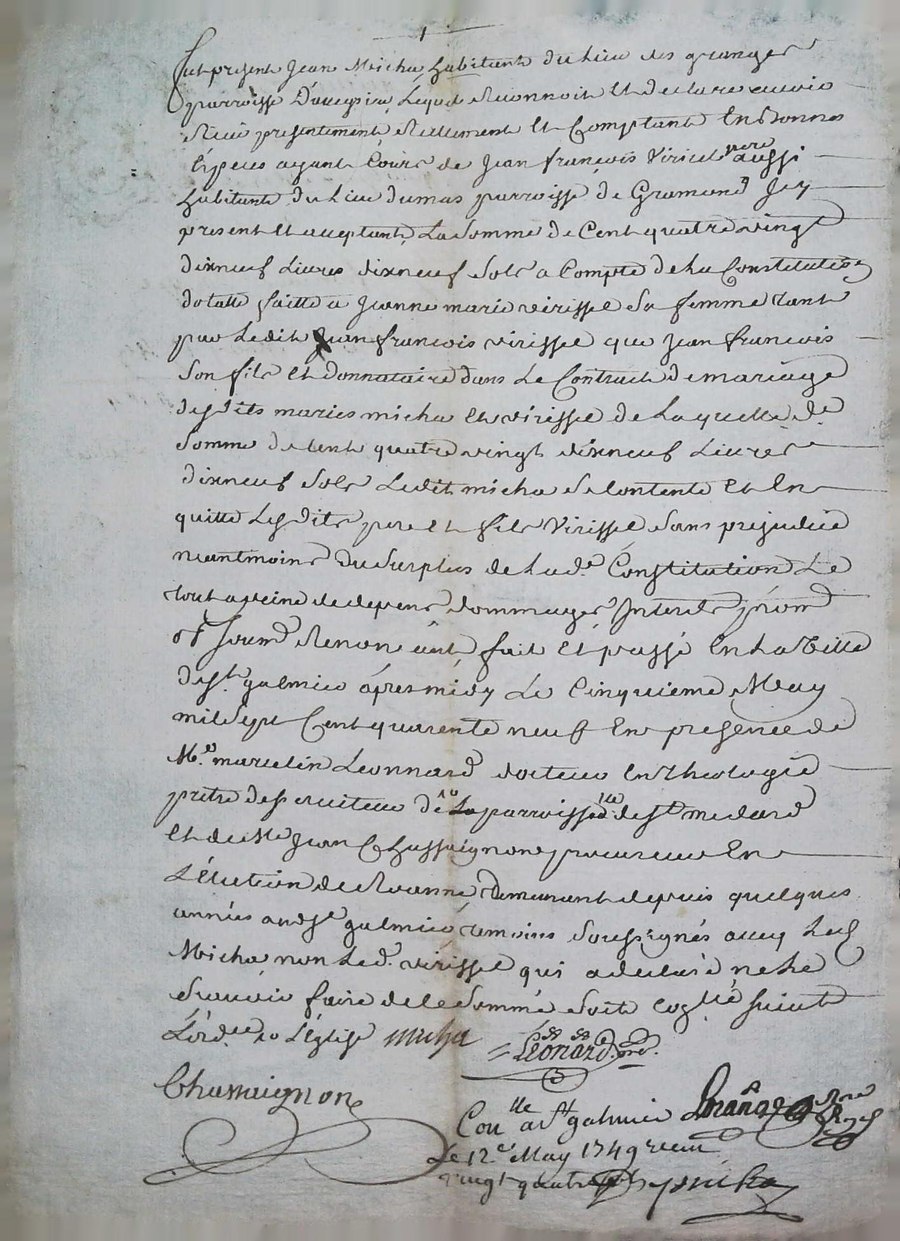 Fut present Jean Micha habitant du lieu des granges
parroisse D'aveysieu Lequel Reconnoit Et declare avoir
Recu presentement Reellement Et Comptant En Bonnes
Especes ayant Cours de Jean françois Viricel pere aussi
habitant du Lieu dumas parroisse de Gramond Jcy
present Et acceptant La Somme de Cent quatre vingt
dixneuf Livres dixneuf Sols a Compte de La Constitution
dotalle faitte a Jeanne marie virissel Sa femme tant
par Ledit Jean francois virissel que Jean francois
Son fils Et donnataire dans Le Contract de mariage
desdits maries micha Et virissel de Laquelle de
Somme de Cent quatre vingt dixneuf Livres
dixneuf Sols Ledit micha Se Contente Et En
quitte Lesdits pere Et fils Virissel Sans prejudice
neantmoins du Surplus de Lad.e Constitution Le
tout a peine de depens dommages Interets
Renon fait Et passé En La Ville
de St galmier apres midy Le Cinquieme May
mil Sept Cent quarente neuf En presence de
M.e marcelin Leonnard docteur En Theologie
prêtre desserviteur de La parroisse de St medard
Et de Me Jean Chassaignon procureur En
L'Election de Roanne demeurant depuis quelques
années aud St galmier temoins Soussignés avec Led
Micha non Led. virissel qui a declaré ne Le
Scavoir faire de Ce Sommé
L'ord.ce L'Eglise micha Leonard
Chassaignon
Con.lle a St galmier
Le 12.e May 1749 recu
vingt quatre